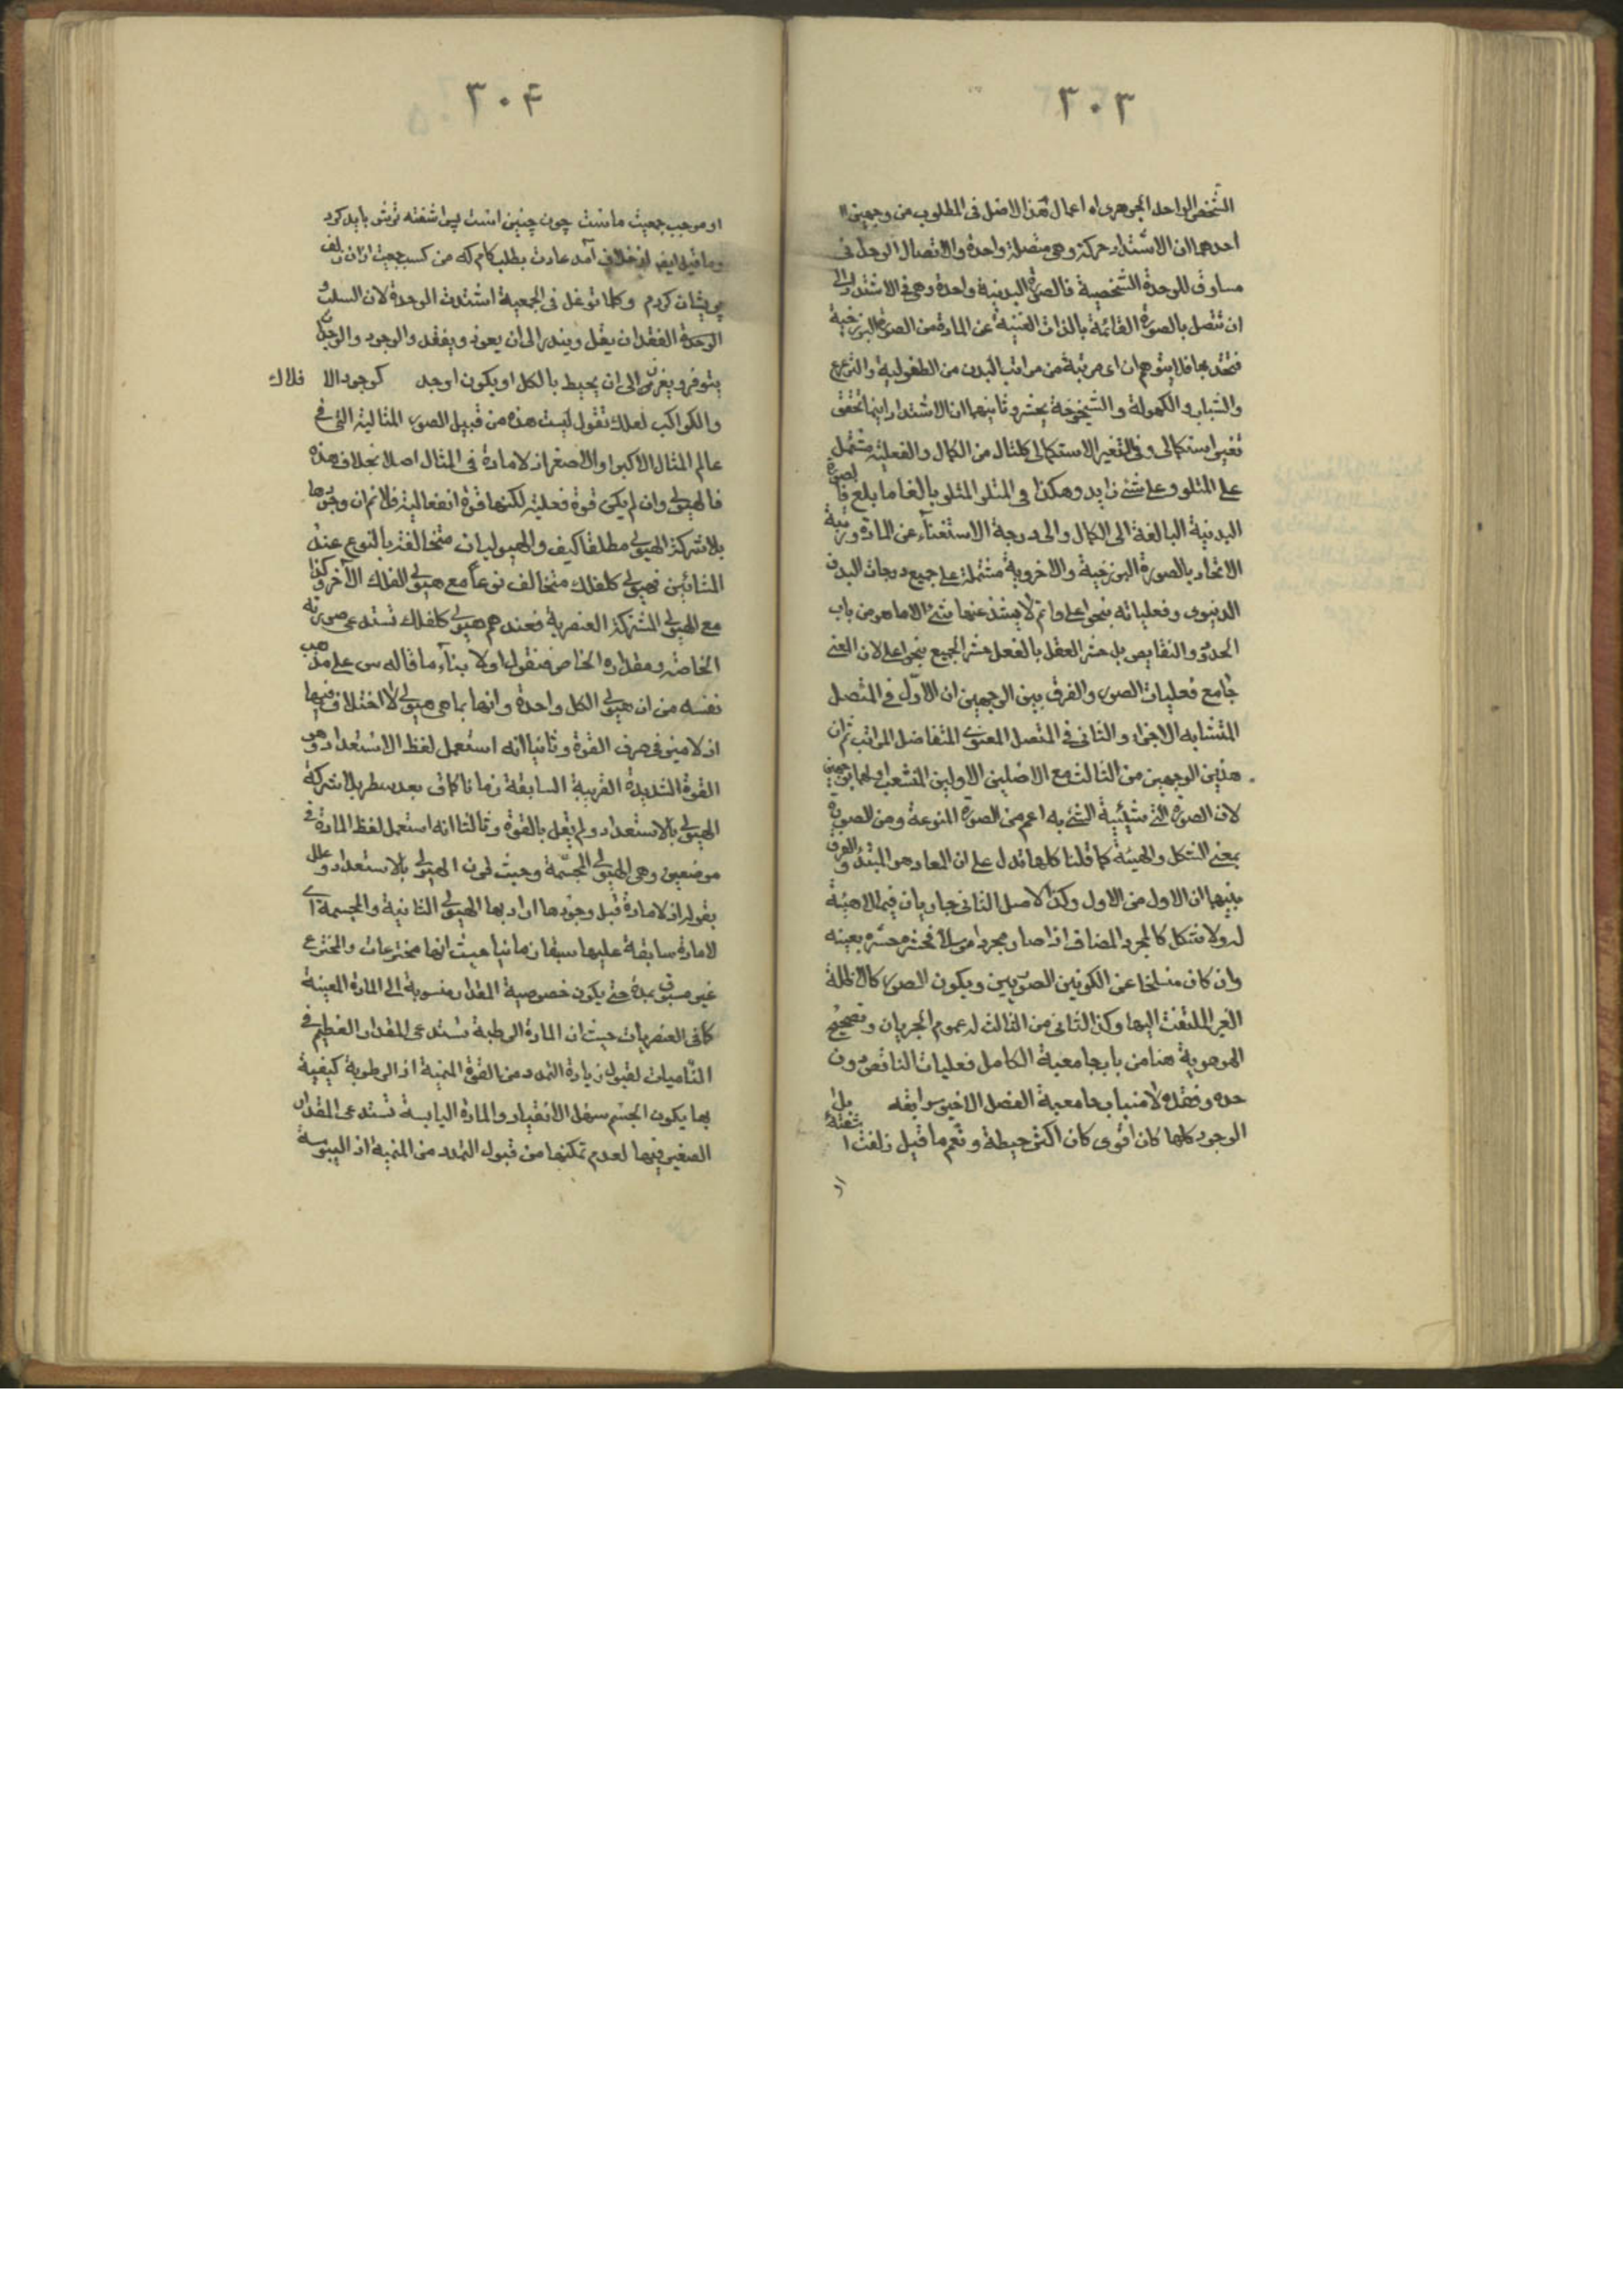 ٣٠٣
الشخص الواحد الجوهرى اه اعمال هذا الاصل فى المطلوب من وجهين
احدهما ان الاشتداد حركة وهى متصلة واحدة والاتصال الوحدانى
مساوق للوحدة الشخصية فالصورة البدنية واحدة وهى فى الاشتداد الى
ان تتصل بالصورة القائمة بالذات الغنية عن المادة من الصورة البرزخية
فتتحد بها فلا يتوهم ان اى مرتبة من مراتب البدن من الطفولية والترعرع
والشباب والكهولة والشيخوخة يحشر وثانيهما ان الاشتداد اينما تحقق
تغير استكمالى وفى التغير الاستكمالى كلتال من الكمال والفعلية مشتمل
على المتلو وعلى شئ زايد وهكذا فى المتلو المتلو بالغا ما بلغ فالصورة
البدنية البالغة الى الكمال والى درجة الاستغناء عن المادة ورتبة
الاتحاد بالصورة البرزخية والاخروية مشتملة على جميع درجات البدن
الدنيوى وفعلياته بنحو اعلى واتم لا يشذ عنها شئ الا ما هو من باب
الحدود والنقايص بل حشر العقل بالفعل حشر الجميع بنحو اعلى لان الغنى
جامع فعليات الصور والفرق بين الوجهين ان الاول فى المتصل
المتشابه الاجزاء والثانى فى المتصل المعنوى المتفاضل المراتب ثم ان
هذين الوجهين من الثالث مع الاصلين الاولين
لان الصورة التى شيئية الشئ به اعم من الصورة النوعية ومن الصورة
بمعنى الشكل والهيئة كما قلنا كلها تدل على ان المعاد هو المبتدء والفرق
بينهما ان الاول من الاول وكذا الاصل الثانى جاريان فيما لا هيئة
له ولا شكل كالمجرد المضاف اذا صار مجردا مرسلا فحشره حشره بعينه
وان كان منسلخا عن الكونين الصوريين ويكون الصور كالاظلة
الغير الملتفت اليها وكذا الثانى من الثالث له عموم الجريان وتصحيح
الهوهوية هنا من باب جامعية الكامل فعليات الناقص دون
حده وفقده لا من باب جامعية الفصل الاخير سوابقه بل
الوجود كلما كان اقوى كان اكثر حيطة ونعم ما قيل زلف آشفتۀ
او
٣٠۴
او موجب جمعيت ماست چون چنين است پس آشفته ترش بايد كرد
وما قيل ايضا از خلاف آمد عادت بطلب كام كه من كسب جمعيت از ان زلف
پريشان كردم وكلما توغل فى الجمعية اشتدت الوحدة لان السلب و
الوحدة الفقدان يقل ويندر الى ان يعوذ ويفقد والوجود والوجدان
يتوفر ويغزر الى ان يحيط بالكل او يكون اوجد كوجود الافلاك
والكواكب لعلك تقول ليست هذه من قبيل الصور المثالية التى فى
عالم المثال الاكبر او الاصغر اذ لا مادة فى المثال اصلا بخلاف هذه
فالهيولى وان لم يكن قوة فعلية لكنها قوة انفعالية فلا نم ان وجودها
بلا شركة الهيولى مطلقا كيف والهيوليات متخالفة بالنوع عند
المشائين فهيولى كل فلك متخالف نوعا مع هيولى الفلك الآخر وكذا
مع الهيولى المشتركة العنصرية فعندهم هيولى كل فلك تستدعى صورته
الخاصة ومقداره الخاص فنقول اولا بناء ما قاله س على مذهب
نفسه من ان هيولى الكل واحدة وانها بما هى هيولى لا اختلاف فيها
اذ لا ميز فى صرف القوة وثانيا انه استعمل لفظ الاستعداد وهو
القوة الشديدة القريبة السابقة زمانا كما قال بعد سطر بلا شركة
الهيولى بالاستعداد ولم يقل بالقوة وثالثا انه استعمل لفظ المادة فى
موضعين وهى الهيولى المجسمة وحيث قرن الهيولى بالاستعداد وعلل
بقوله اذ لا مادة قبل وجودها اراد بها الهيولى الثانية والمجسمة اى
لا مادة سابقة عليها سبقا زمانيا حيث انها مخترعات والمخترع
غير مسبوق بمدة حتى يكون خصوصية المقدار منسوبة الى المادة المعينة
كما فى العنصريات حيث ان المادة الرطبة تستدعى المقدار العظيم فى
الناميات لقبول زيادة التمدد من القوة المنمية اذ الرطوبة كيفية
بها يكون الجسم سهل الانقياد والمادة اليابسة تستدعى المقدار
الصغير فيها لعدم تمكنها من قبول التمدد من المنمية اذ اليبوسة